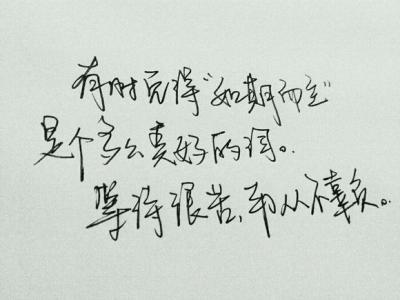 有时觉得“如期而至”
是个多么美好的词。
等待很苦，却从不辜负。